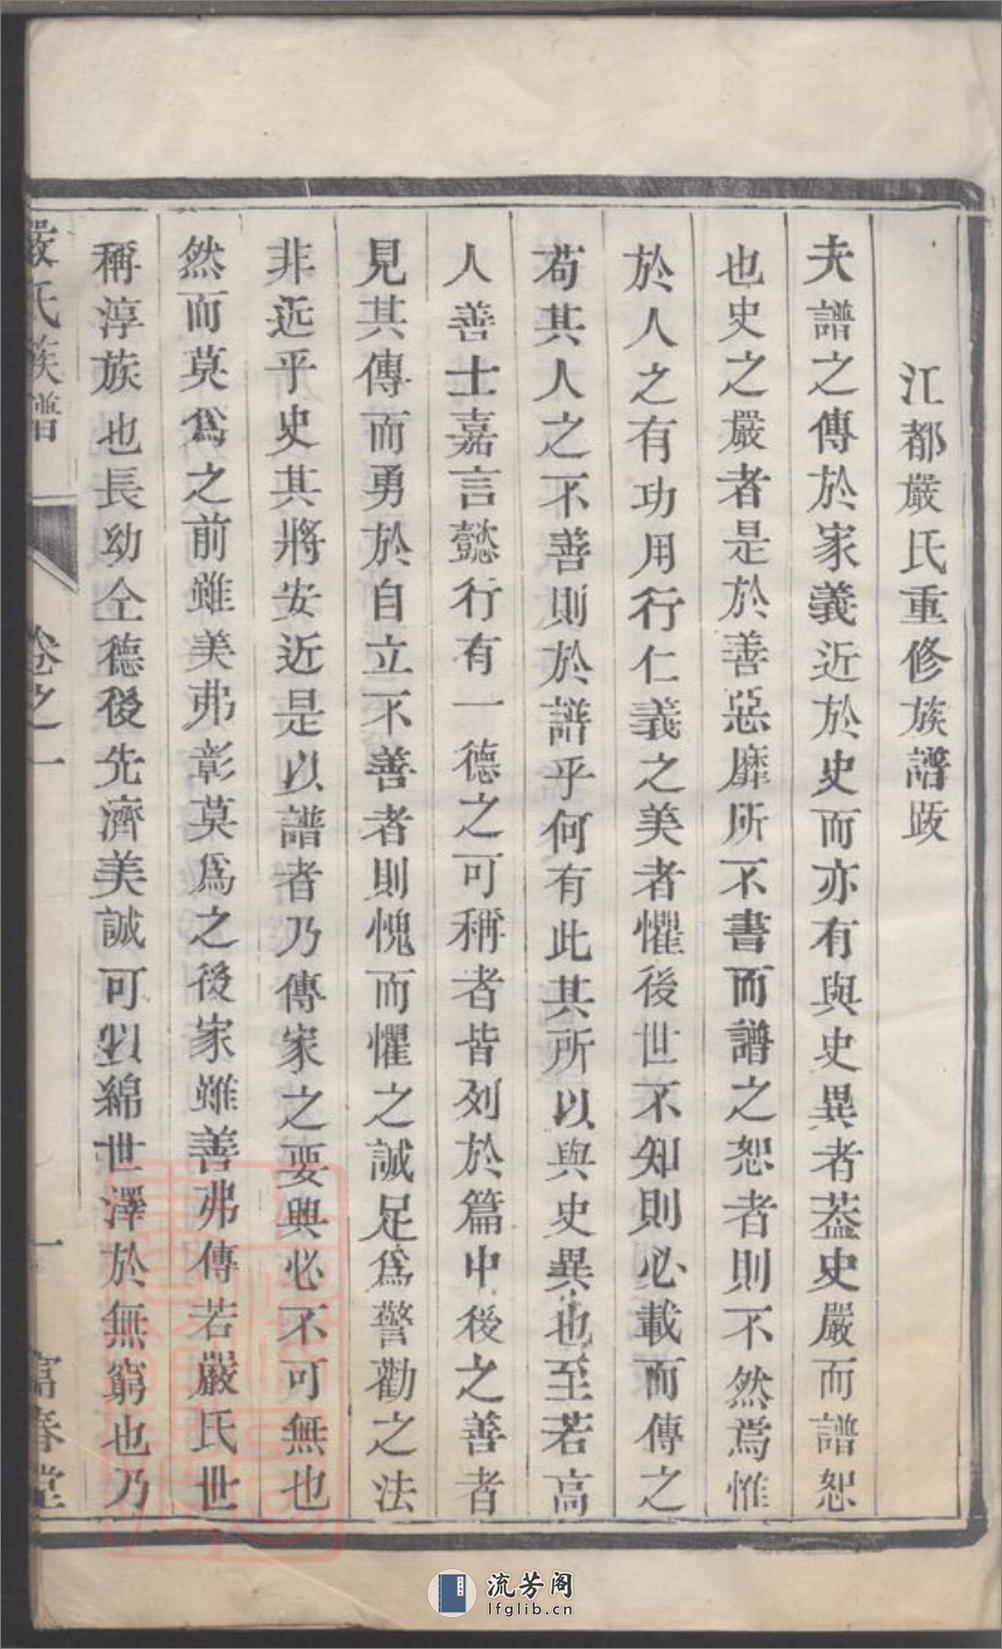 江都嚴氏重修族譜跋
夫譜之傳於家義近於史而亦有與史異者葢史嚴而譜恕
也史之嚴者是於善惡靡所不書而譜之恕者則不然爲惟
於人之有功用行仁義之美者懼後世不知則必載而傳之
苟其人之不善則於譜乎何有此其所以與史異也至若高
人善士嘉言懿行有一德之可稱者皆列於篇中後之善者
見其傳而勇於自立不善者則愧而懼之誠足爲警勸之法
非近乎史其將安近是以譜者乃傳家之要典必不可無也
然而莫爲之前雖美弗彰莫爲之後家雖善弗傳若嚴氏世
稱淳族也長幼仝德後先濟美誠可以綿世澤於無窮也乃
嚴氏族譜 卷之一 一 富春堂
流芳阁
lfglib.cn